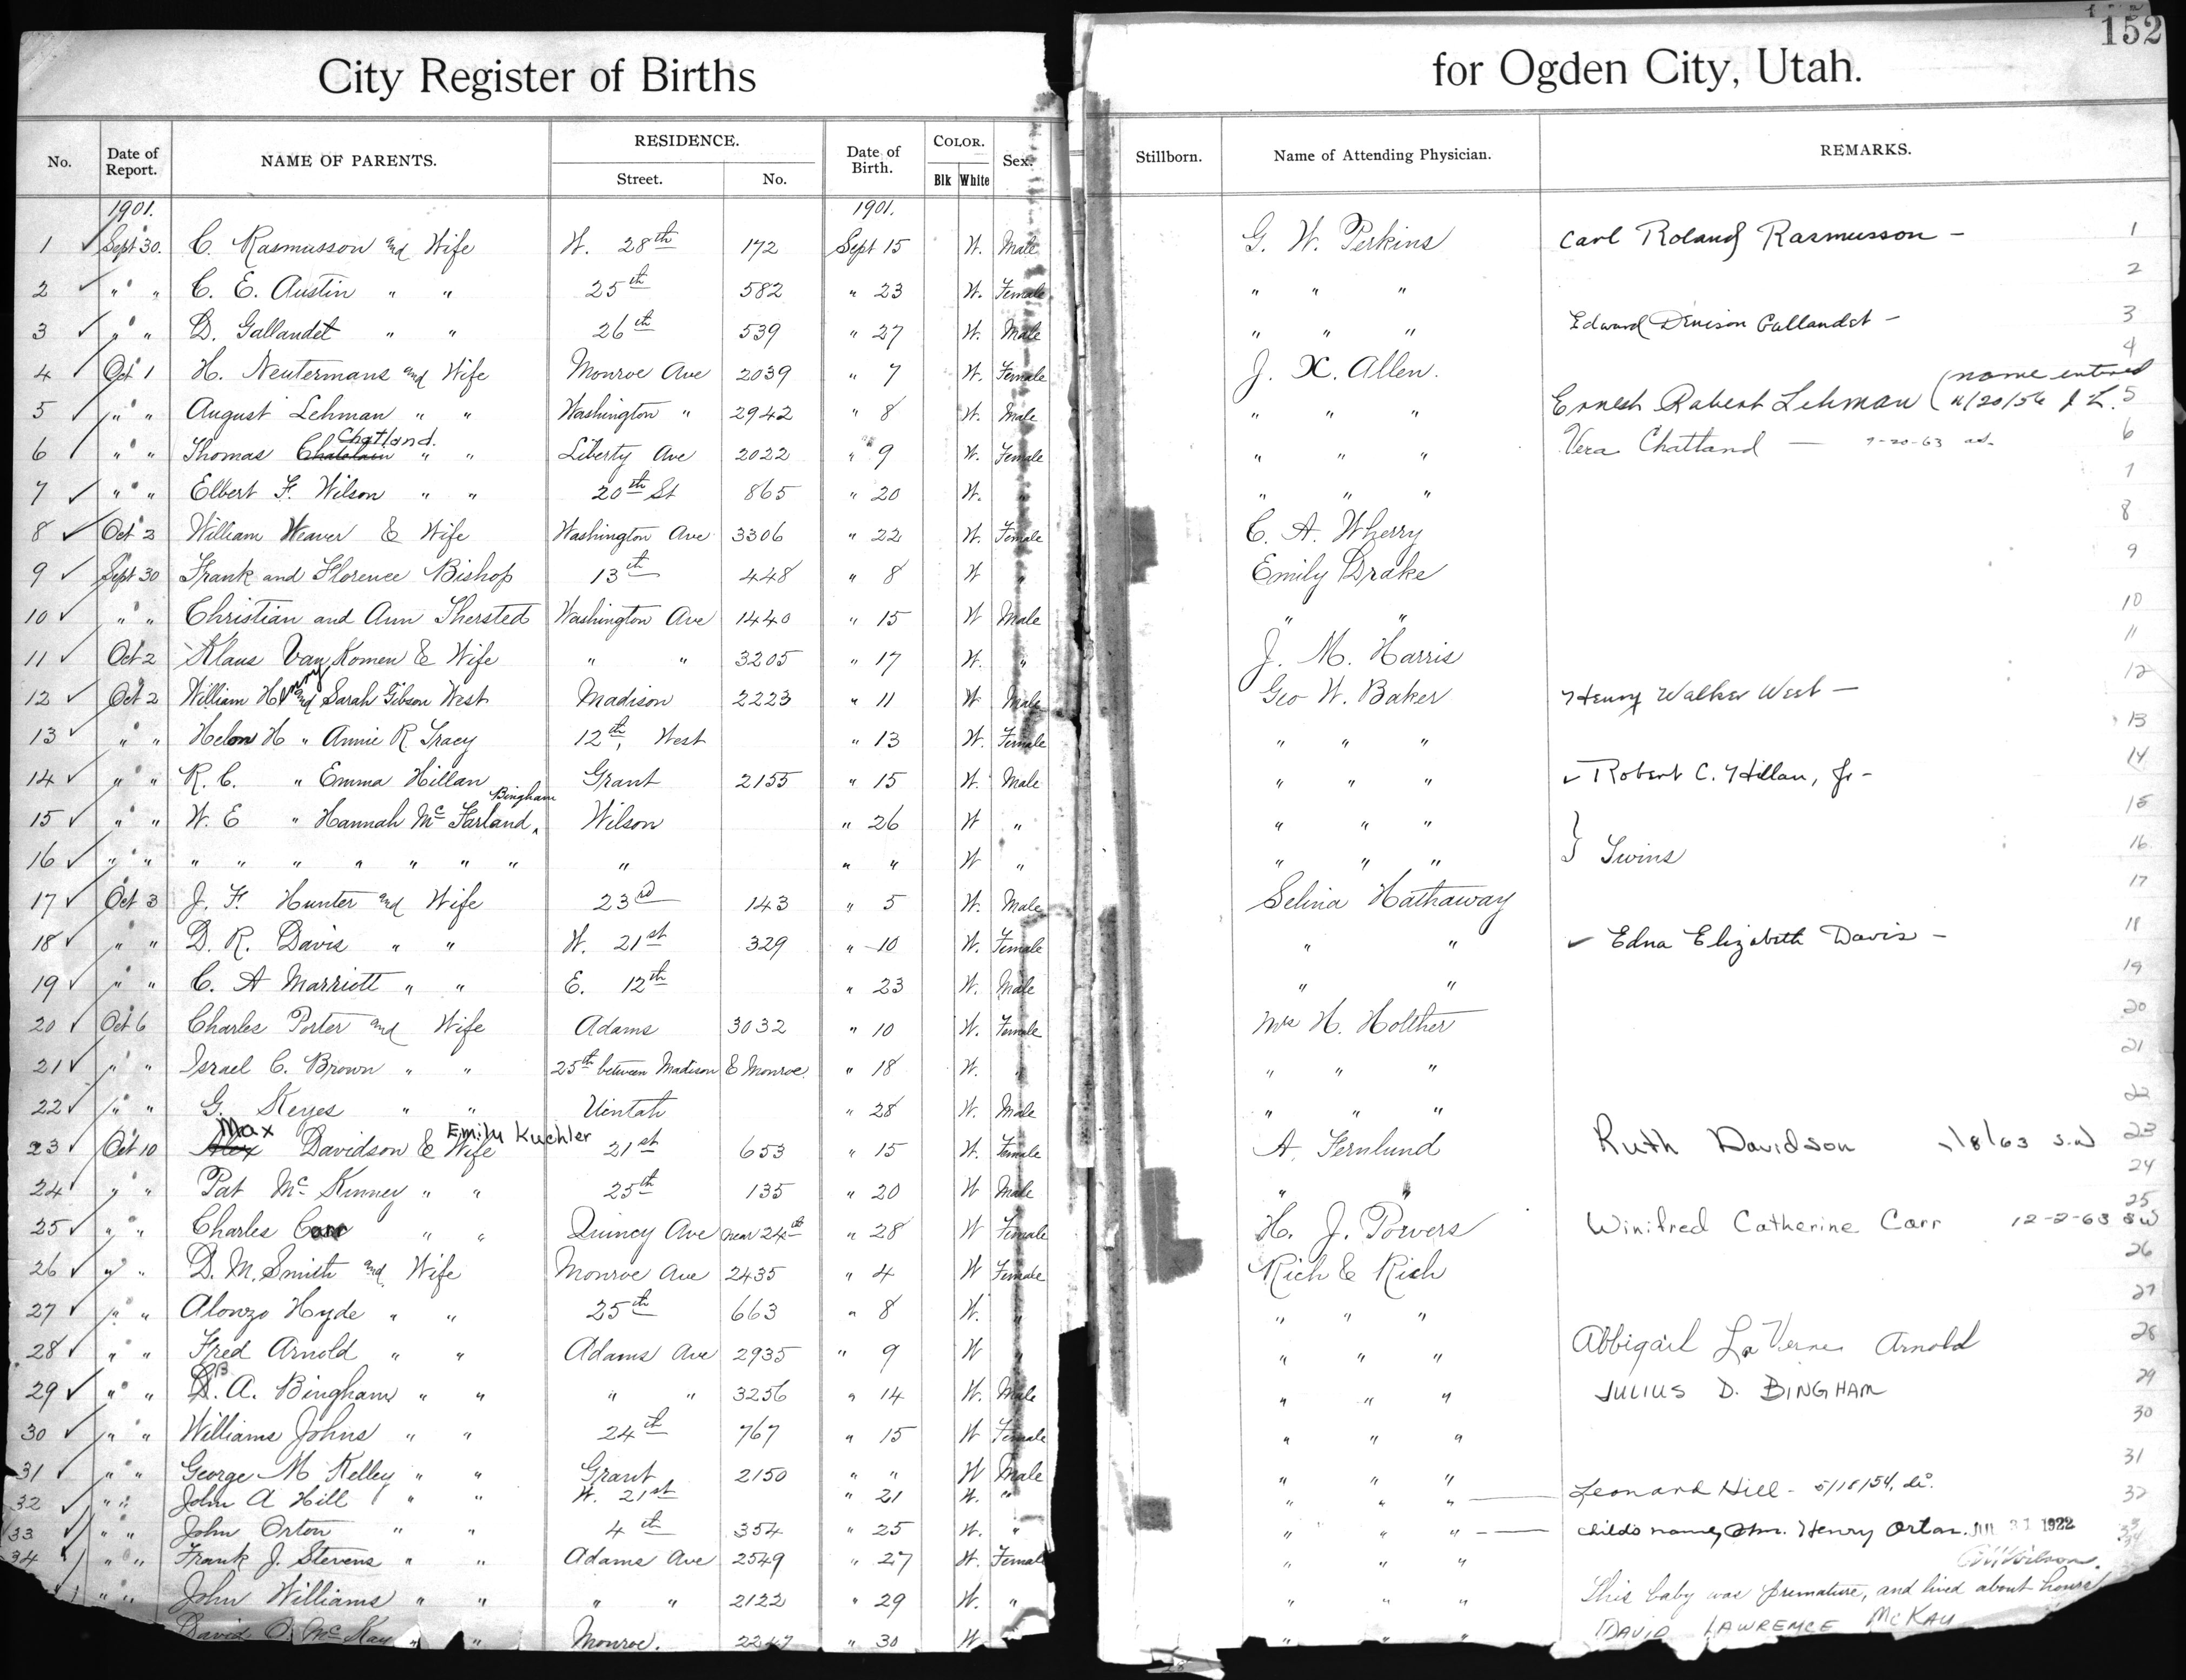 152
City Register of Births for Ogden City, Utah.
No. Date of Report. NAME OF PARENTS. RESIDENCE. Street. No. Date of Birth. COLOR. Blk White Sex. Stillborn. Name of Attending Physician. REMARKS.
1901. 1901.
1 Sept 30. C. Rasmusson and Wife W. 28th 172 Sept 15 W. Male G. W. Perkins Carl Roland Rasmusson - 1
2 " " C. E. Austin " " 25th 582 " 23 W. Female " " " 2
3 " " D. Gallaudet " " 26th 539 " 27 W. Male " " " Edward Denison Gallaudet - 3
4 Oct 1 H. Neutermans and Wife Monroe Ave 2039 " 7 W. Female J. X. Allen. 4
5 " " August Lehman " " Washington " 2942 " 8 W. Male " " " Ernest Robert Lehman (name entered 11/20/56 J L. 5
6 " " Thomas Chatland. " " Liberty Ave 2022 " 9 W. Female " " " Vera Chatland — 9-20-63 6
7 " " Elbert F. Wilson " " 20th St 865 " 20 W. " " " " 7
8 Oct 2 William Weaver & Wife Washington Ave 3306 " 22 W. Female C. A. Wherry 8
9 Sept 30 Frank and Florence Bishop 13th 448 " 8 W " Emily Drake 9
10 " " Christian and Ann Thersted Washington Ave 1440 " 15 W Male " " 10
11 Oct 2 Klaus Van Komen & Wife " " 3205 " 17 W. " J. M. Harris 11
12 Oct 2 William Henry and Sarah Gibson West Madison 2223 " 11 W Male Geo W. Baker Henry Walker West — 12
13 " " Helon H " Annie R. Tracy 12th, West " 13 W. Female " " " 13
14 " " R. C. " Emma Hillan Grant 2155 " 15 W. Male " " " Robert C. Hillan, Jr - 14
15 " " W. E " Hannah Bingham McFarland Wilson " 26 W " " " " 15
16 " " " " " " " " " " " " W " " " " } Twins 16
17 Oct 3 J. F. Hunter and Wife 23rd 143 " 5 W. Male Selina Hathaway 17
18 " " D. R. Davis " " W. 21st 329 " 10 W. Female " " Edna Elizabeth Davis - 18
19 " " C. A Marriott " " E. 12th " 23 W. Male " " 19
20 Oct 6 Charles Porter and Wife Adams 3032 " 10 W. Female Mrs H. Holther 20
21 " " Israel C. Brown " " 25th between Madison & Monroe. " 18 W. " " " " 21
22 " " G. Keyes " " Uintah " 28 W. Male " " " 22
23 Oct 10 Alex Max Davidson & Wife Emily Kuchler 21st 653 " 15 W. Female A. Fernlund Ruth Davidson 1/8/63 SW 23
24 " " Pat McKinney " " 25th 135 " 20 W Male " " 24
25 " " Charles Carr " " Quincy Ave near 24th " 28 W Female H. J. Powers Winifred Catherine Carr 12-2-63 SW 25
26 " " D. M. Smith and Wife Monroe Ave 2435 " 4 W Female Rich & Rich 26
27 " " Alonzo Hyde " " 25th 663 " 8 W. " " " " 27
28 " " Fred Arnold " " Adams Ave 2935 " 9 W " " " " Abbigail La Verne Arnold 28
29 " " B. A. Bingham " " " " 3256 " 14 W. Male " " " JULIUS D. BINGHAM 29
30 " " Williams Johns " " 24th 767 " 15 W Female " " " 30
31 " " George M Kelley " " Grant 2150 " " W Male " " " 31
32 " " John A Hill " " W. 21st " 21 W. " " " " — Leonard Hill - 5/18/54, 32
33 " " John Orton " " 4th 354 " 25 W. " " " " — child's name, Wm. Henry Orton. JUL 31 1922 33
34 " " Frank J. Stevens " " Adams Ave 2549 " 27 W. Female " " " Wilson. 34
" " John Williams " " " " 2122 " 29 W. " " " " This baby was premature, and lived about hours
David O. McKay " " Monroe. 2247 " 30 W " " " DAVID LAWRENCE McKAY